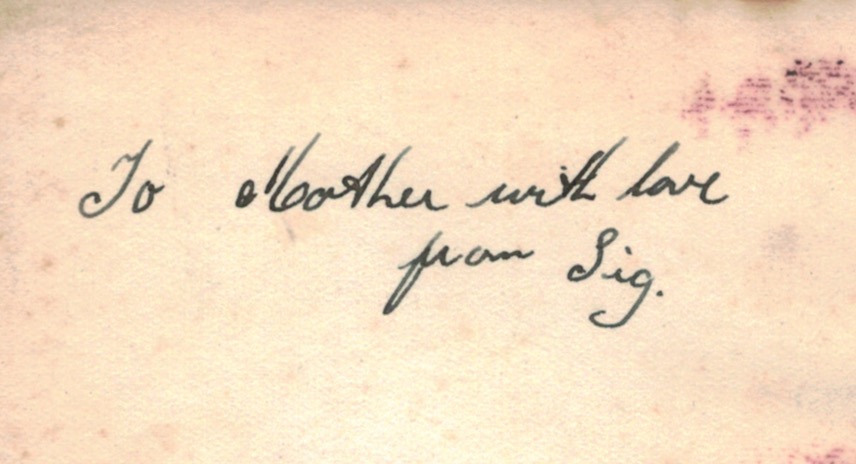 To Mother with love
from Sig.